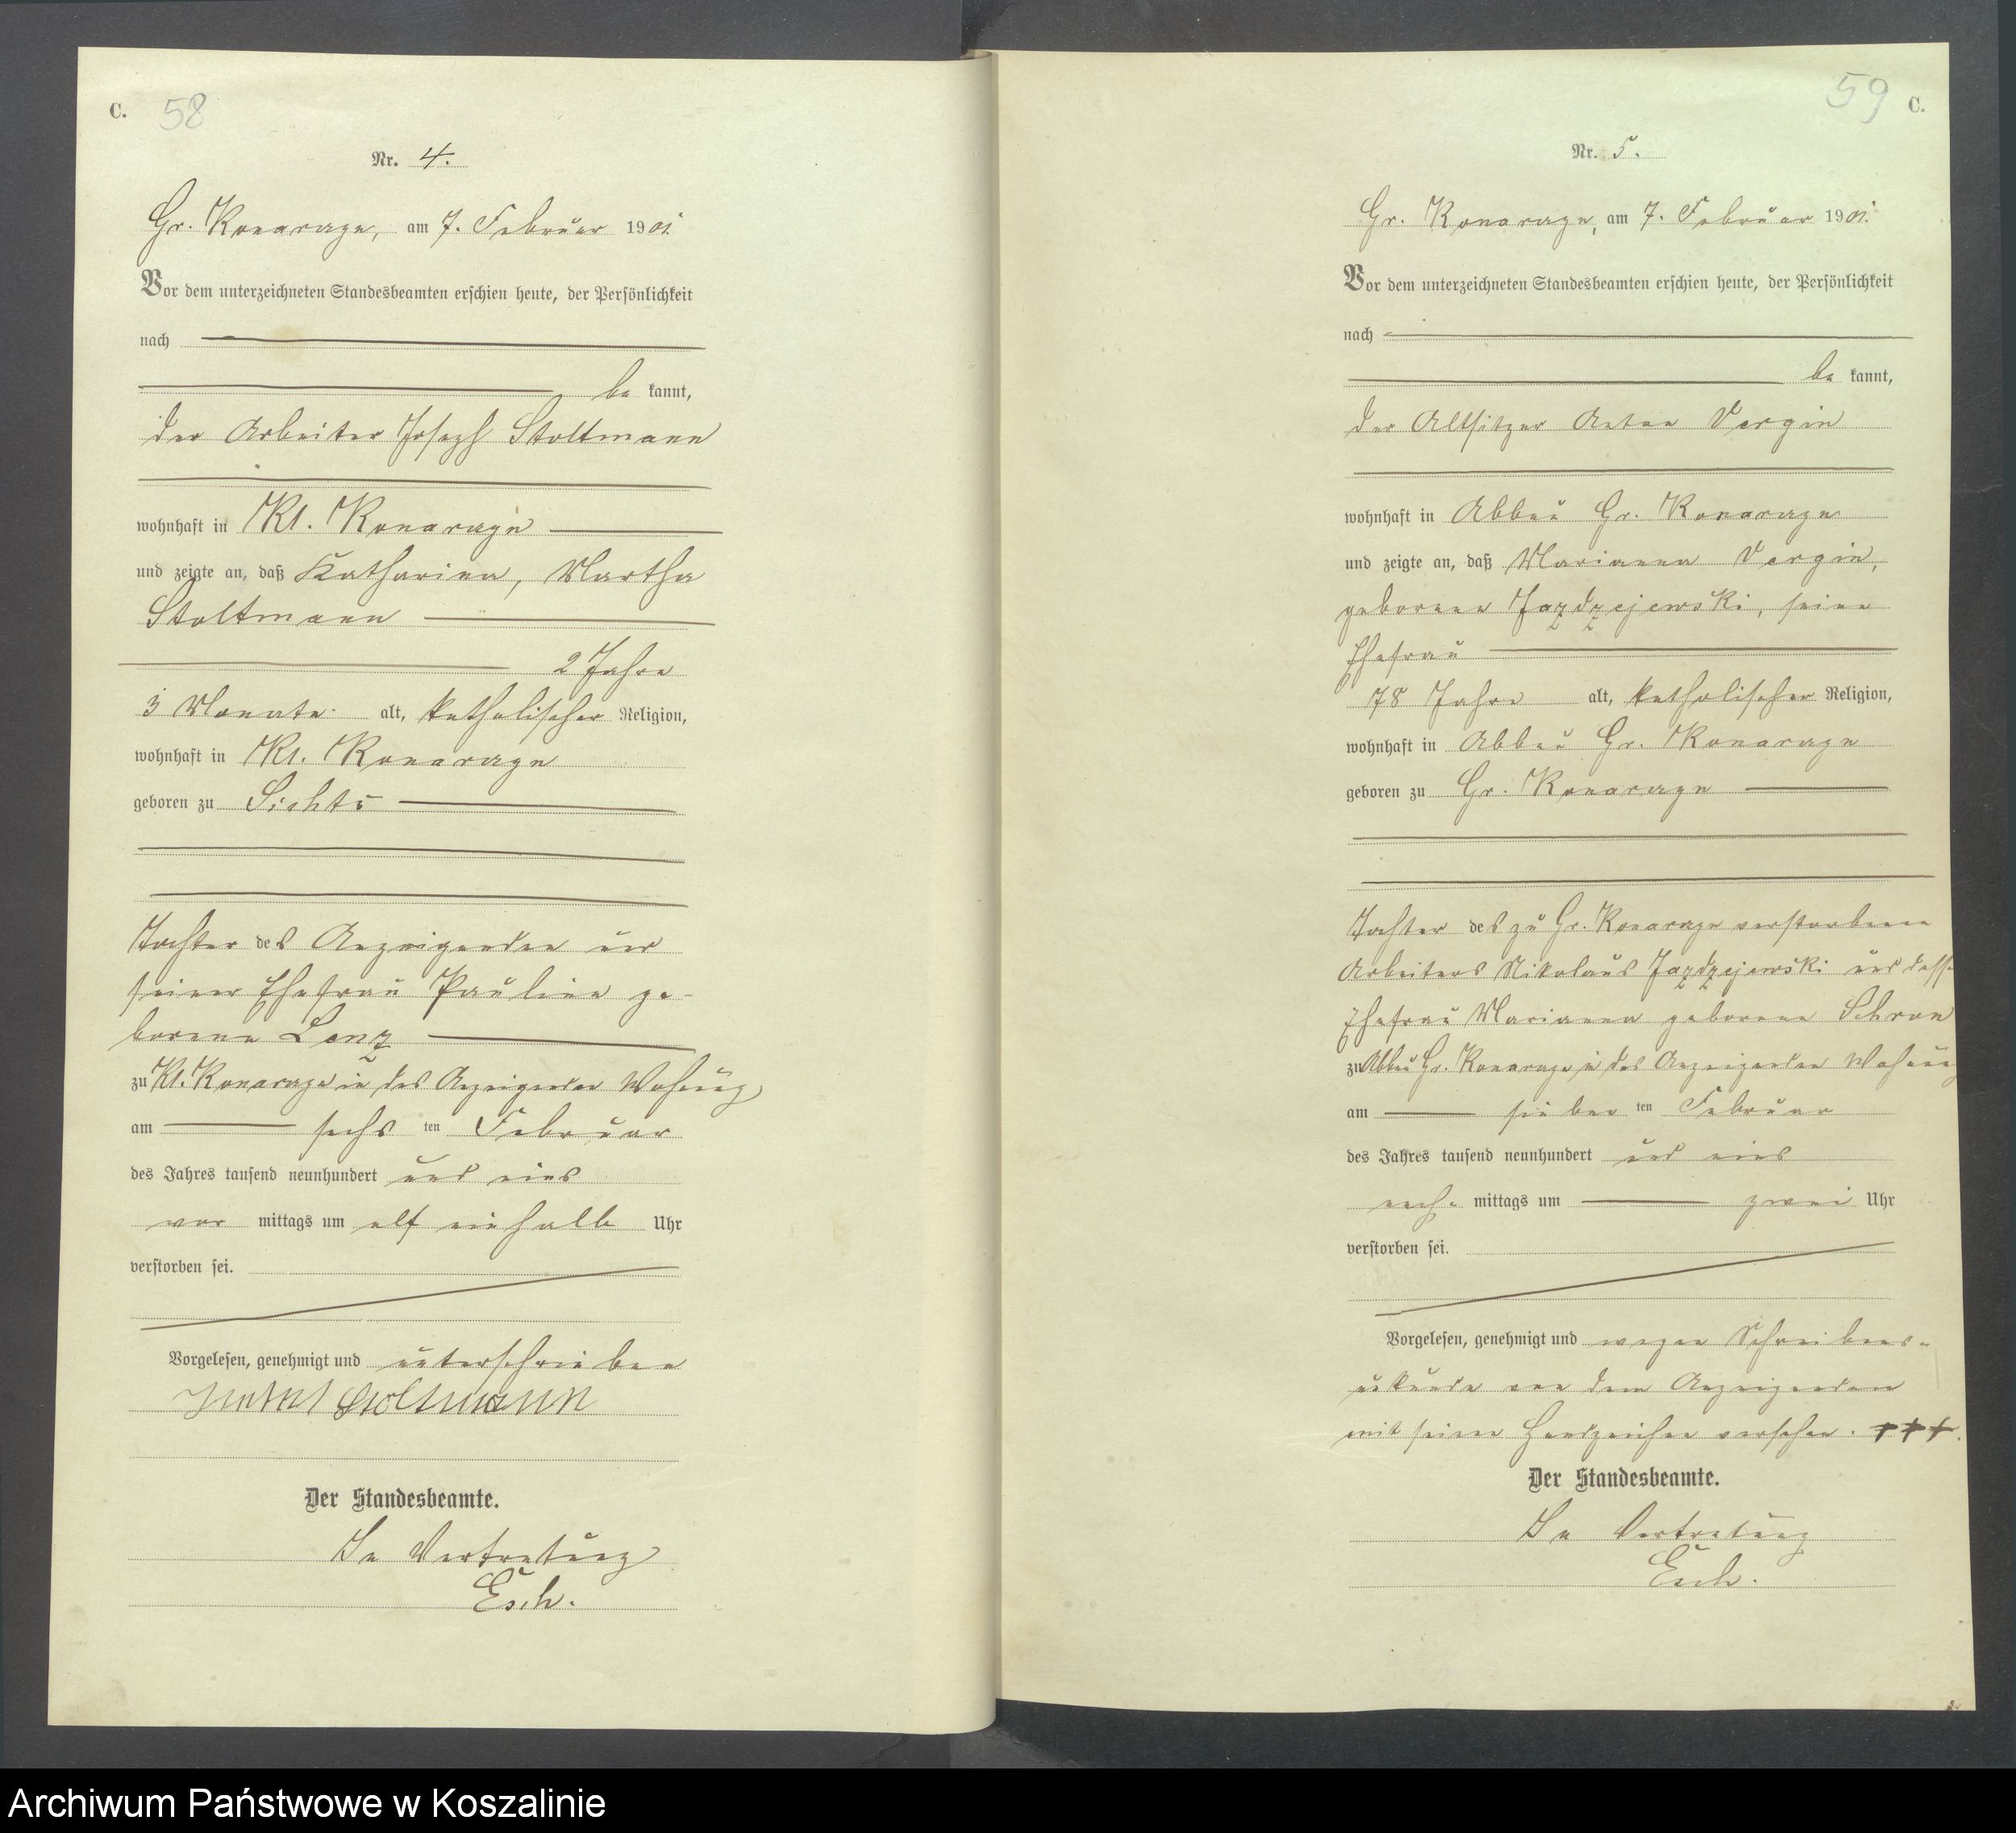 C. 58
Nr. 4.
Gr. Konarczyn, am 7. Februar 1901.
Vor dem unterzeichneten Standesbeamten erschien heute, der Persönlichkeit
nach
be kannt,
der Arbeiter Joseph Stoltmann
wohnhaft in Kl. Konarczyn
und zeigte an, daß Katharina, Martha
Stoltmann
2 Jahre
3 Monate alt, katholischer Religion,
wohnhaft in Kl. Konarczyn
geboren zu Sichts
Tochter des Anzeigenden und
seiner Ehefrau Pauline ge-
borene Lenz
zu Kl. Konarczyn in des Anzeigenden Wohnung
am sechs ten Februar
des Jahres tausend neunhundert und eins
vor mittags um elf einhalb Uhr
verstorben sei.
Vorgelesen, genehmigt und unterschrieben
Stoltmann
Der Standesbeamte.
In Vertretung
Esch.
59 C.
Nr. 5.
Gr. Konarczyn, am 7. Februar 1901.
Vor dem unterzeichneten Standesbeamten erschien heute, der Persönlichkeit
nach
be kannt,
der Altsitzer Anton Vergin
wohnhaft in Abbau Gr. Konarczyn
und zeigte an, daß Marianna Vergin,
geborene Jazdzejewski, seine
Ehefrau
78 Jahre alt, katholischer Religion,
wohnhaft in Abbau Gr. Konarczyn
geboren zu Gr. Konarczyn
Tochter des zu Gr. Konarczyn verstorbenen
Arbeiters Nikolaus Jazdzejewski und dessen
Ehefrau Marianna geborene
zu Abbau Gr. Konarczyn in des Anzeigenden Wohnung
am sieben ten Februar
des Jahres tausend neunhundert und eins
nach mittags um zwei Uhr
verstorben sei.
Vorgelesen, genehmigt und wegen Schreibens-
unkunde von dem Anzeigenden
mit seinen Handzeichen versehen. +++.
Der Standesbeamte.
In Vertretung
Esch.
Archiwum Państwowe w Koszalinie